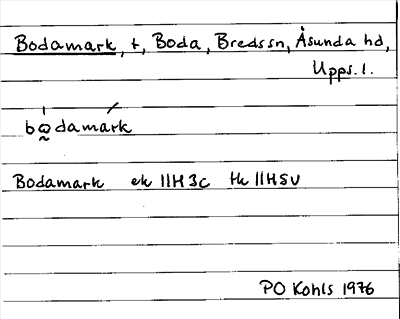 Bodamark, t, Boda, Bredssn, Åsunda hd,
Upps. l.
bo̰damark
Bodamark ek 11H3c tk 11H5V
PO Kohls 1976